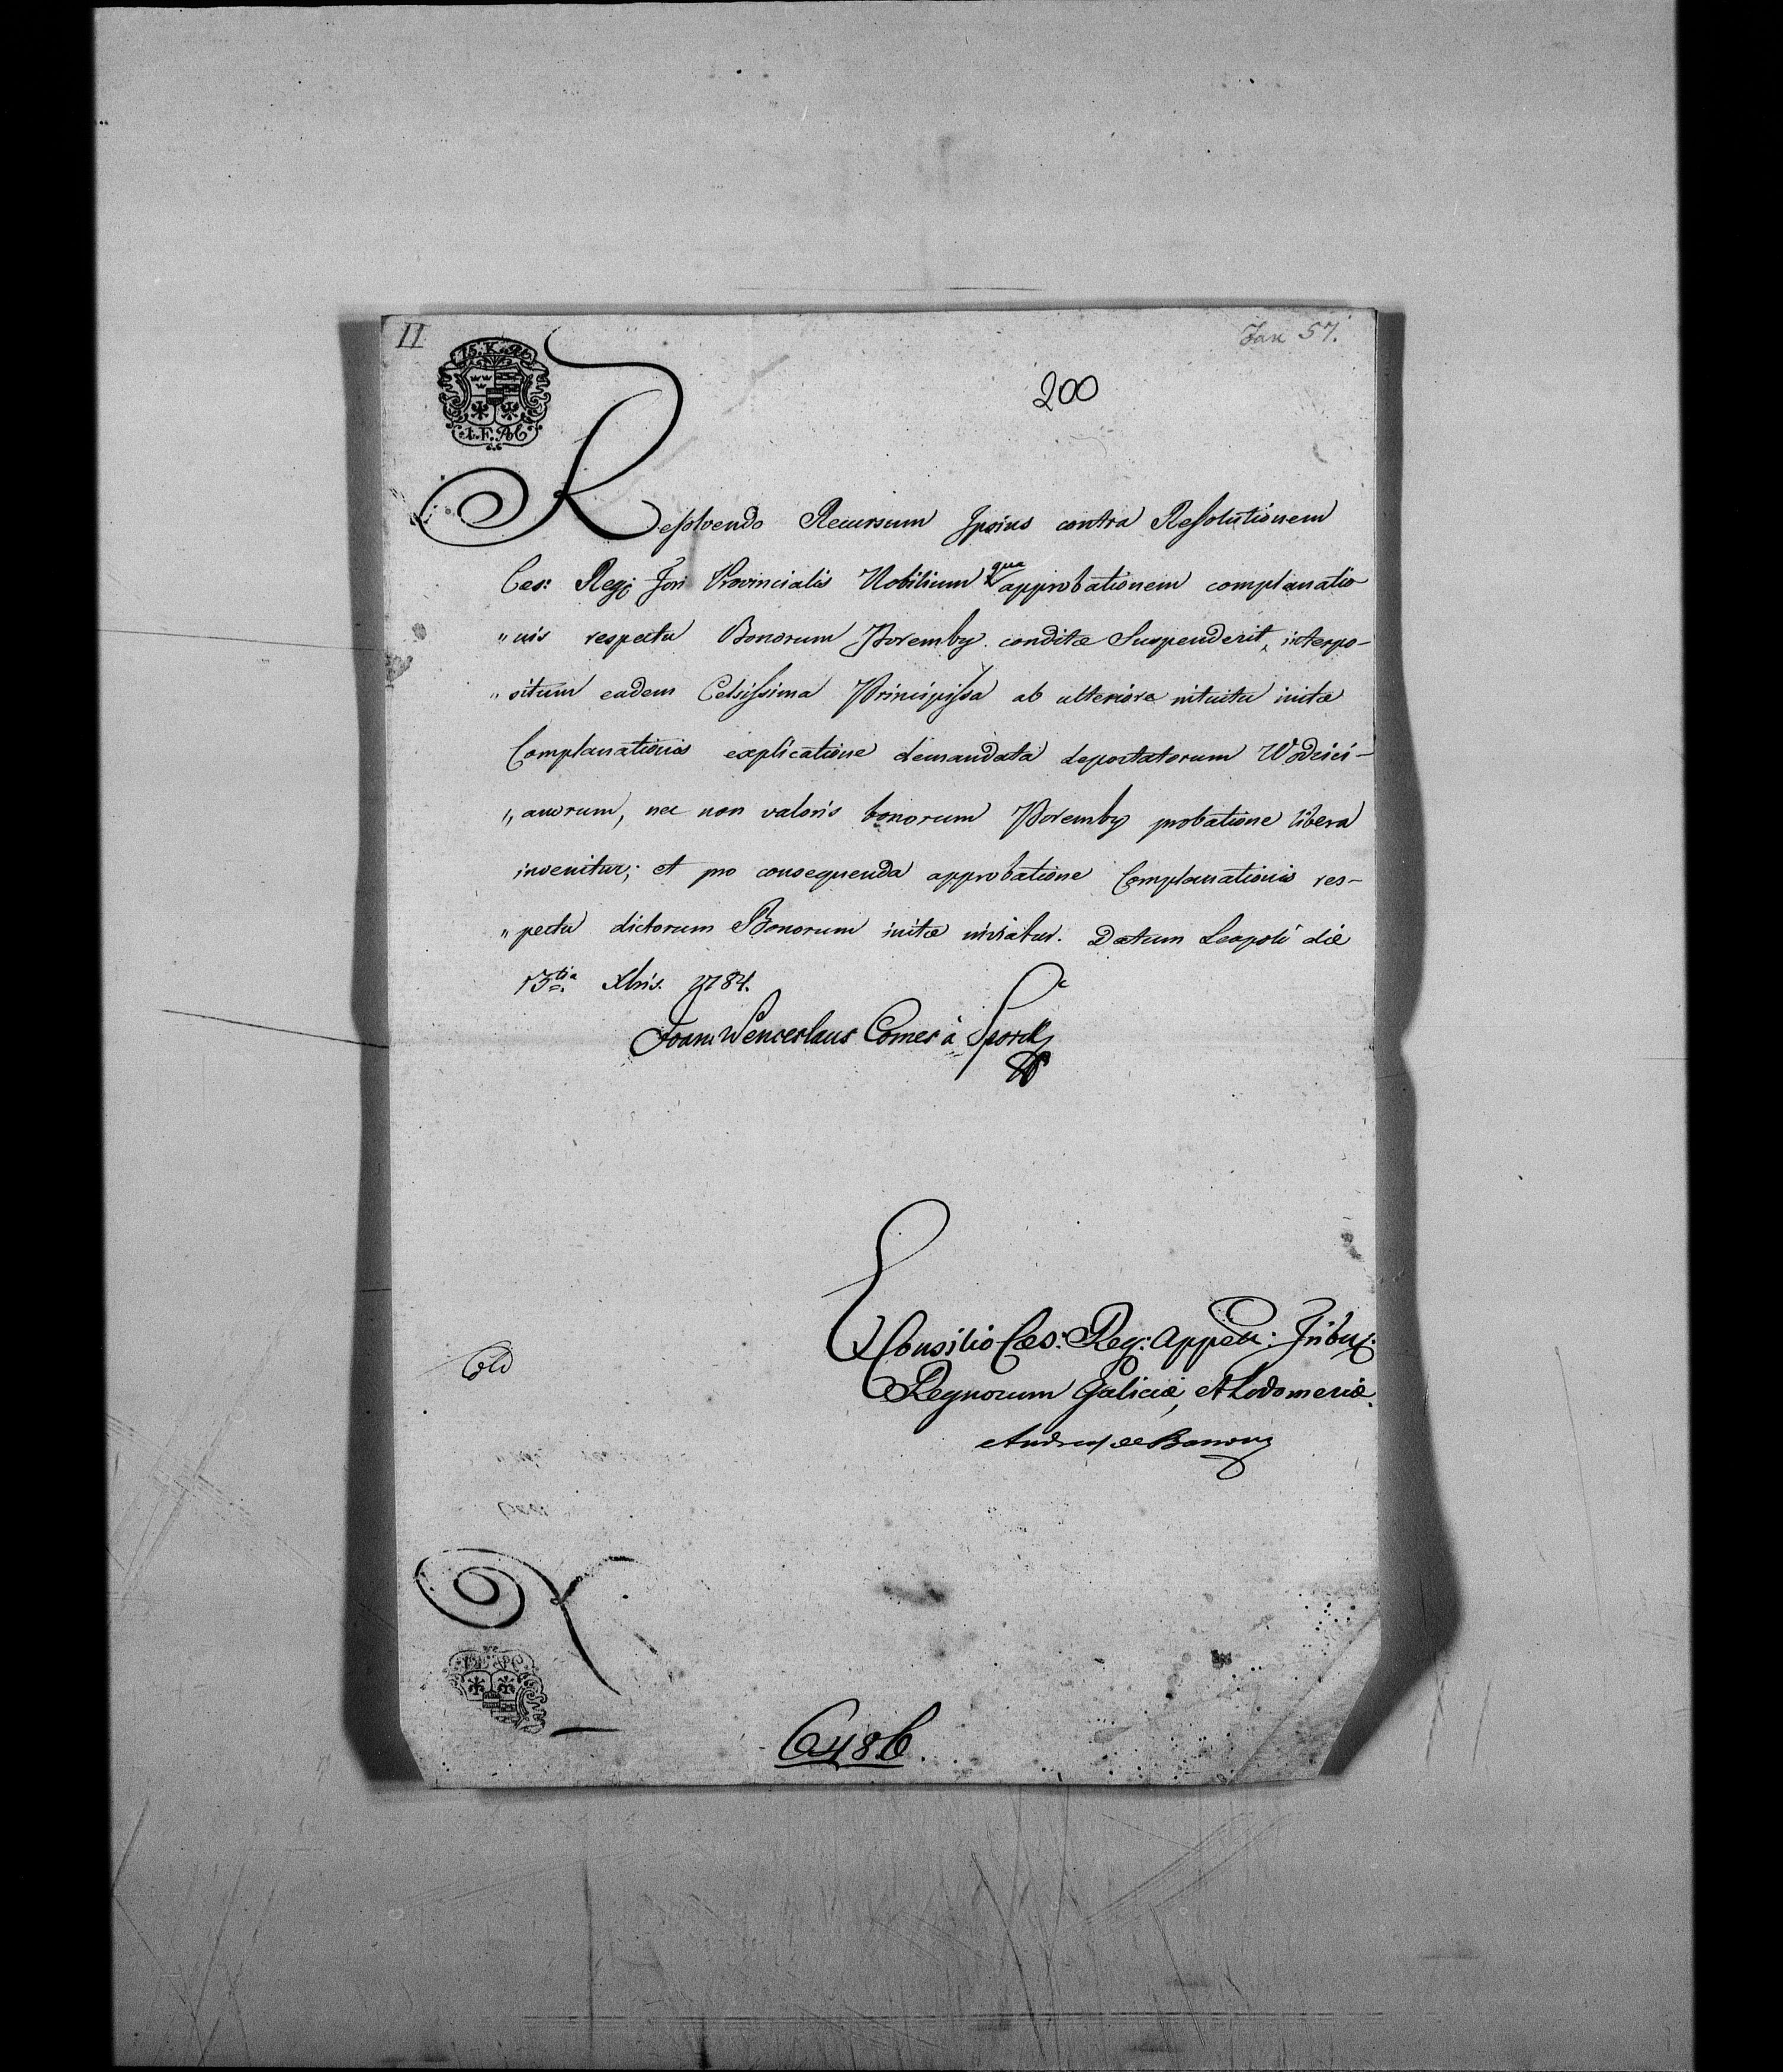 II
Fan 57.
15. K. R.
200
Resolvendo Recursum Ipsius contra Resolutionem
Caes: Reg: Fori Provincialis Nobilium qua approbationem complanatio
"nis respectu Bonorum Poremby conditae Suspenderit, interpo-
"situm eadem Celsissima Principissa ab ulteriore intuitu initae
Complanationis explicatione demandata deportatorum Wodzici-
"anorum, nec non valoris bonorum Poremby probatione libera
invenitur; et pro consequenda approbatione Complanationis res-
"pectu dictorum Bonorum initae inviatur. Datum Leopoli die
13tia Xbris. 1784.
Joan: Wenceslaus Comes à Sporck
E Consilio Caes: Reg: Appell: Tribu:
Regnorum Galiciae, et Lodomeriae.
6486.